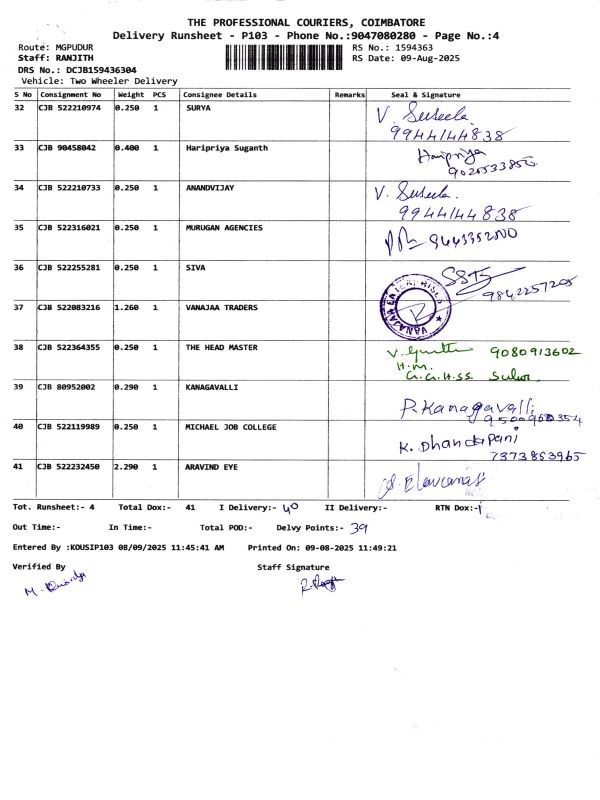 THE PROFESSIONAL COURIERS, COIMBATORE
Delivery Runsheet - P103 - Phone No.:9047080280 - Page No.:4
Route: MGPUDUR RS No.: 1594363
Staff: RANJITH RS Date: 09-Aug-2025
DRS No.: DCJB159436304
Vehicle: Two Wheeler Delivery
S No Consignment No Weight PCS Consignee Details Remarks Seal & Signature
32 CJB 522210974 0.250 1 SURYA V. Suseela
9944144838
33 CJB 90458042 0.400 1 Haripriya Suganth Haripriya
34 CJB 522210733 0.250 1 ANANDVIJAY V. Suseela.
9944144838
35 CJB 522316021 0.250 1 MURUGAN AGENCIES
36 CJB 522255281 0.250 1 SIVA
9842257205
37 CJB 522083216 1.260 1 VANAJAA TRADERS VANAJAA ENTERPRISES
38 CJB 522364355 0.250 1 THE HEAD MASTER V. 9080913602
H.M.
G.G.H.SS. Sulur
39 CJB 80952002 0.290 1 KANAGAVALLI P. Kanagavalli
9500950354
40 CJB 522119989 0.250 1 MICHAEL JOB COLLEGE K. Dhandapani
7373853965
41 CJB 522232450 2.290 1 ARAVIND EYE
Tot. Runsheet:- 4 Total Dox:- 41 I Delivery:- 40 II Delivery:- RTN Dox:-1
Out Time:- In Time:- Total POD:- Delvy Points:- 39
Entered By :KOUSIP103 08/09/2025 11:45:41 AM Printed On: 09-08-2025 11:49:21
Verified By Staff Signature